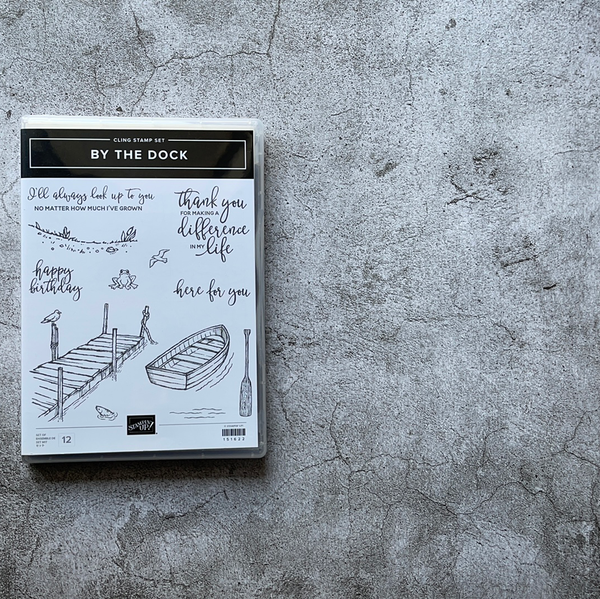 CLING STAMP SET
BY THE DOCK
I'll always look up to you
NO MATTER HOW MUCH I'VE GROWN
thank you
FOR MAKING A
difference
IN MY life
happy
birthday
here for you
STAMPIN' UP!
SET OF
12
151622